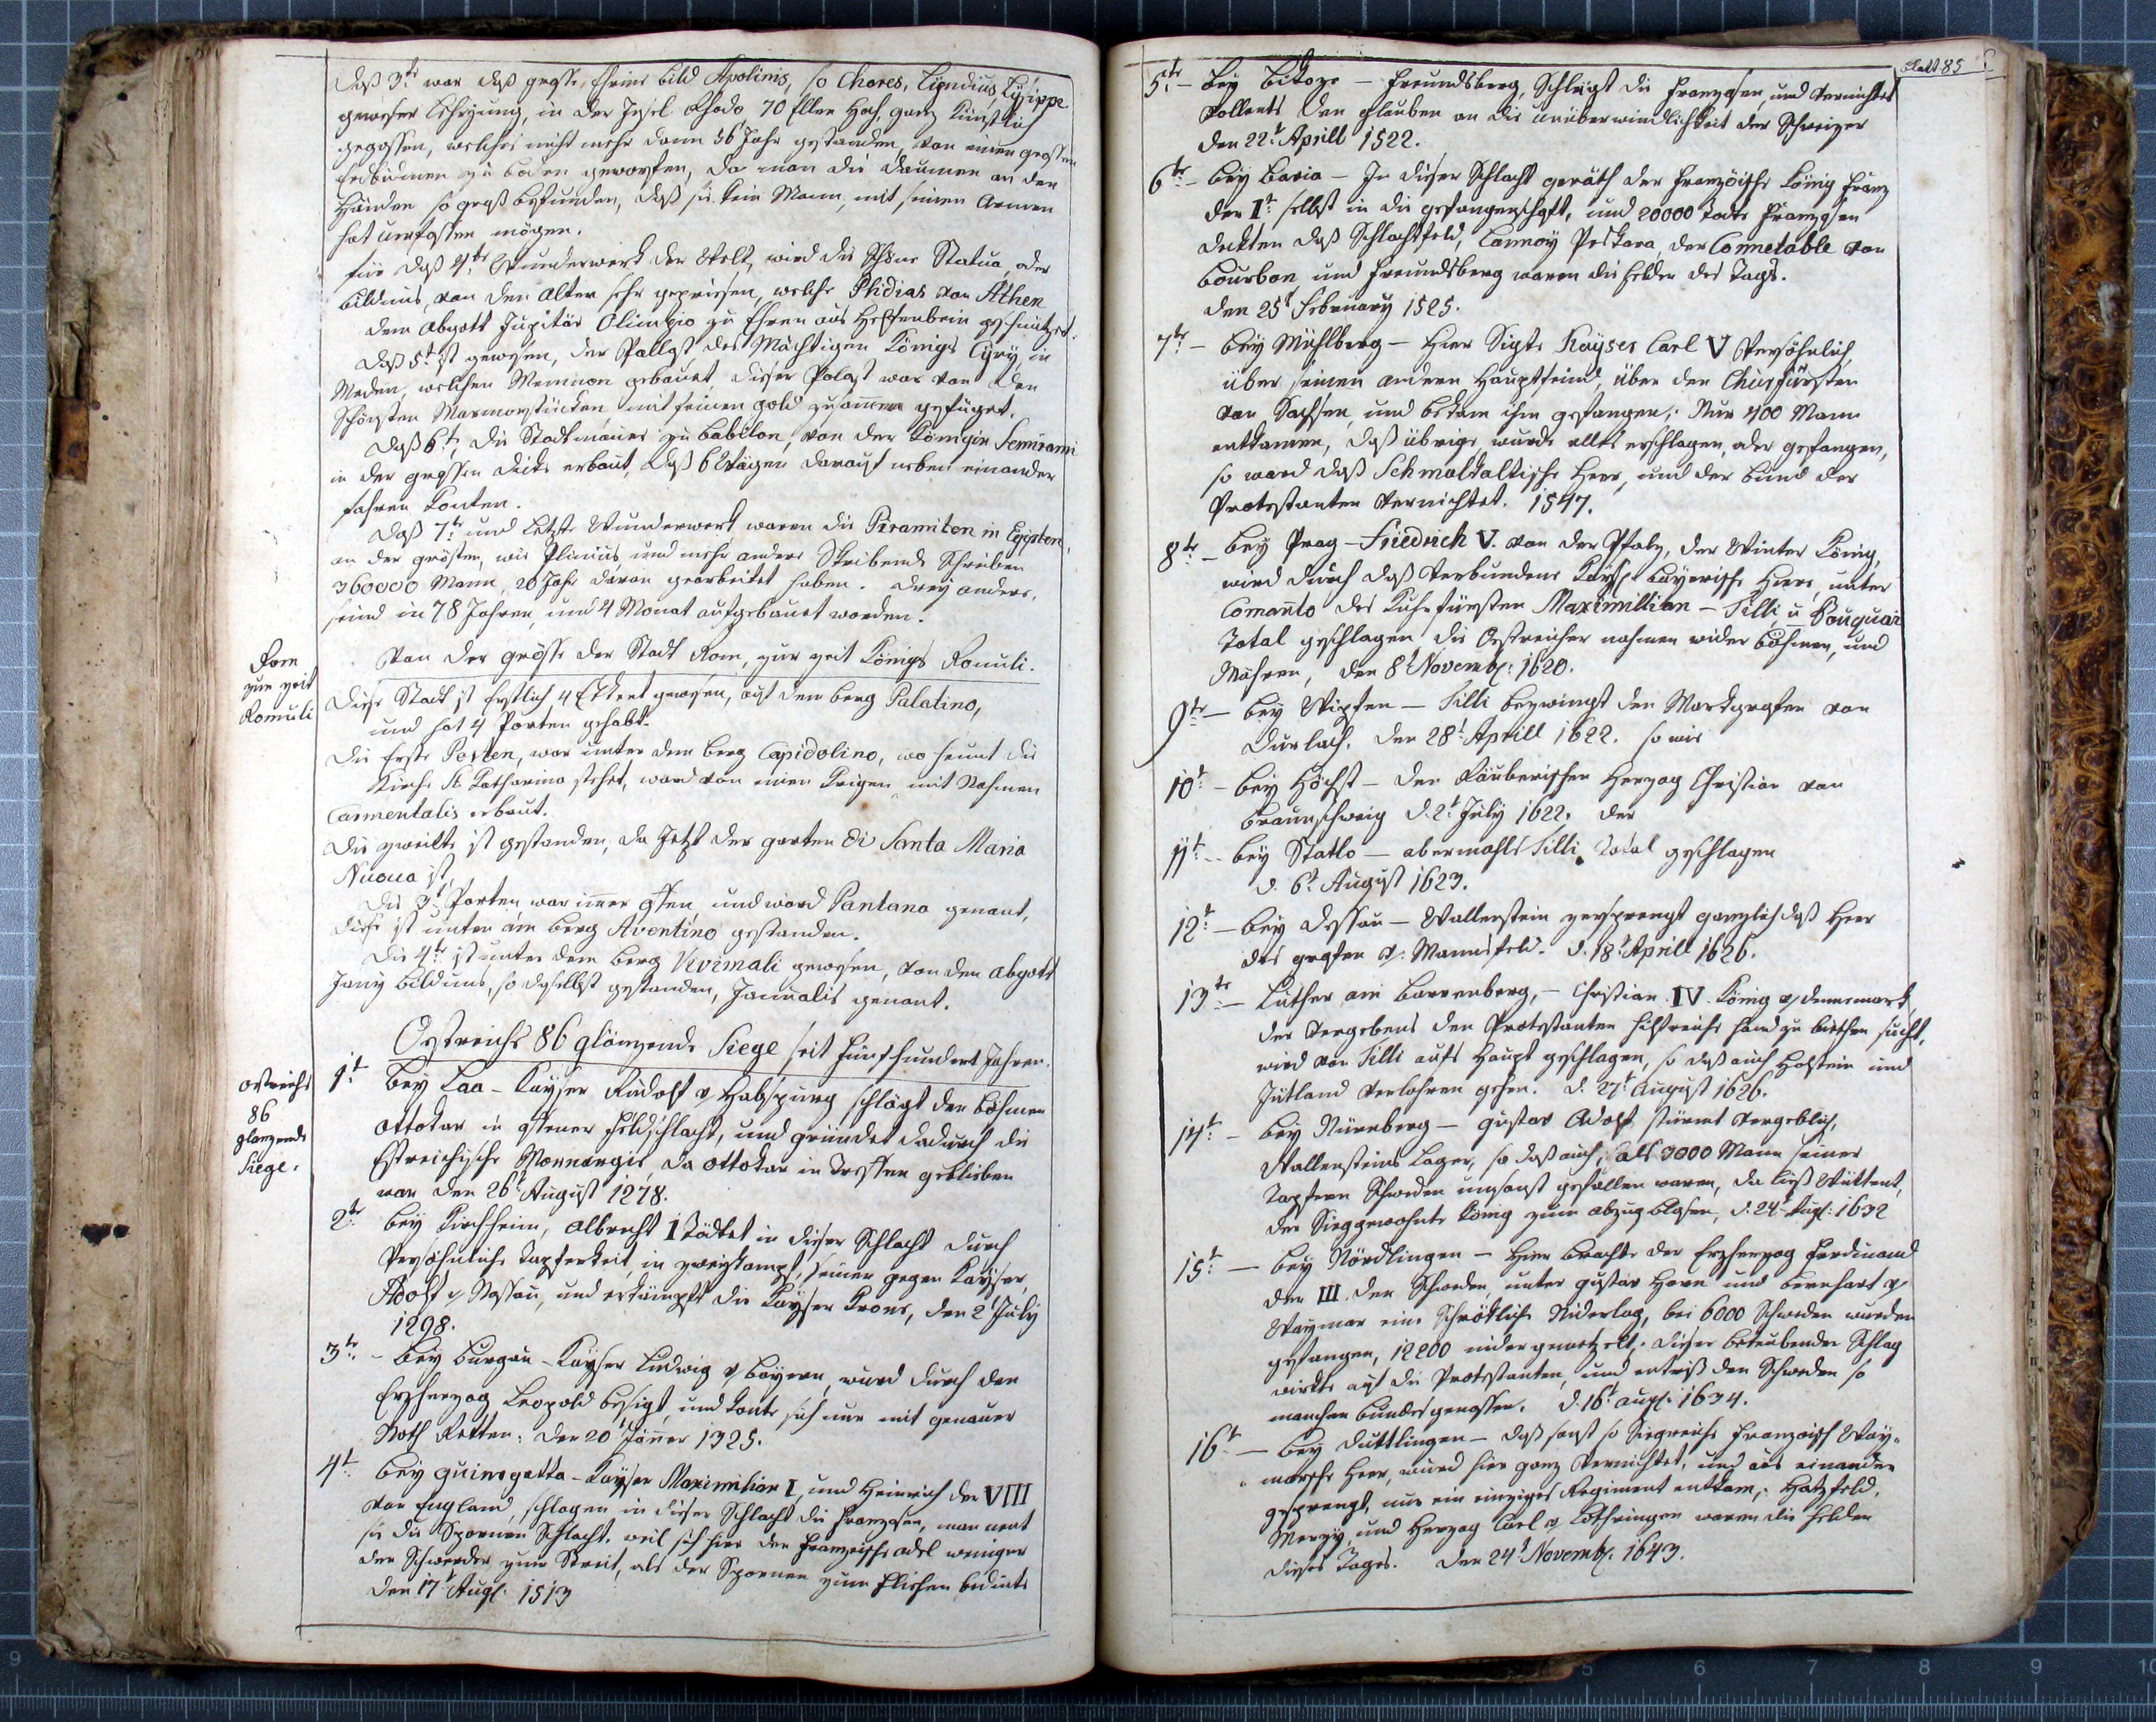 Daß 3te war daß grosse Eherne bild Apolinis, so Chores, Lyndius, Lysippe
gewester Lehrjung, in der Insel Rhodo 70 Ellen hoch, ganz künstlich
gegossen, welches nicht mehr dann 56 Jahr gestanden, von einen grossen
Erdbidmen zu boden geworfen, da man die Daumen an den
Händen so groß befunden, daß sie kein Mann, mit seinen Armen
hat umfassen mögen.
Für daß 4te Wunderwerk der Welt, wird die Schöne Statua, oder
bildnus, von den Alten sehr gepriesen, welche Phidias von Athen
dem Abgott Jupitär Olimpio zu Ehren aus Helfenbein geschnitzet.
Daß 5t ist gewesen, der Pallast des Mächtigen Königs Cyry, in
Meden, welchen Memnon gebauet, dieser Palast war von den
Schönsten Marmorstücken mit feinen gold zusammen gefüget.
Daß 6t, die Stadtmauer zu Babilon, von der Königin Semirami
in der grossen dicke erbaut, daß 6 Wägen darauf neben einander
fahren konten.
Daß 7te und Letzte Wunderwerk waren die Piramiten in Egipten,
an der grösten, wie Plinius und mehr andere Skribende Schreiben
360000 Mann, 20 Jahr daran gearbeitet haben. drey andere,
seind in 78 Jahren, und 4 Monat aufgebauet worden.
Rom
zur zeit
Romuli
Von der grösse der Stadt Rom, zur zeit Königs Romuli.
Diese Stadt ist Erstlich 4 Ekket gewesen, auf dem berg Palatino,
und hat 4 Porten gehabt.
Die Erste Porten, war unter dem berg Capidolino, wo heunt die
Kirche St. Katharina stehet, ward von einen mit Nahmen
Carmentalis erbaut.
Die zweite ist gestanden, da Jetzt der garten di Santa Maria
Nuova ist,
Die 3t Porten war imer offen und ward Pantano genant,
diese ist unten am berg Aventino gestanden.
Die 4te ist unter dem berg Vivimali gewesen, von den Abgott
Jany bildnus, so daselbst gestanden, Janualis genant.
Ostreichs
86
glanzende
Siege.
Ostreichs 86 glänzende Siege seit fünfhundert Jahren.
1t Bey Laa - Kayser Rudolf v Habspurg schlägt den böhmen
Ottokar in offener feldschlacht, und gründet dadurch die
Estreichische Monnargie, da Ottokar in Treffen geblieben
war den 26t August 1278.
2te Bey Kirchheim, Albrecht I tödtet in dieser Schlacht durch
Persöhnliche tapferkeit in zweykampf, seinen gegen Kayser,
Adolf v Nassau, und erkämpft die Kayser Krone, den 2t July
1298.
3te - Bey Burgau - Kayser Ludwig v Bayern, wurd durch den
Erzherzog Leopold besigt, und konte sich nur mit genauer
Noth Retten: den 20t Jänner 1325.
4t Bey Guinegatta - Kayser Maximilian I, und Heinrich der VIII
von England, schlagen in dieser Schlacht die Franzosen, man nent
sie die Spornen Schlacht, weil sich hier der Französische Adel weniger
der Schwerder zum Streit, als der Spornen zum fliehen bediente
den 17t Augs. 1513
Blatt 85
5te - Bey Bikoze - Freundsberg, Schlägt die Franzosen, und vernichtet
vollents den glauben an die unüberwindlichkeit der Schweizer
den 22t Aprill 1522.
6te - Bey Bavia - In dieser Schlacht geräth der Französische König Franz
der It selbst in die gefangenschaft, und 20000 Todte Franzosen
deckten daß Schlachtfeld, Lannoy Peskara, der Connetable von
Bourbon, und Freundsberg waren die Helden des Tags.
den 25t February 1525.
7te - Bey Mühlberg - Hier Sigte Kayser Carl V Persöhnlich,
über seinen andern Hauptfeind, über den Churfürsten
von Sachsen, und bekam ihn gefangen, Nur 400 Mann
entkamen, daß übrige, wurde alles erschlagen, oder gefangen,
so ward daß Schmalkaltische Heer, und der bund der
Protestanten vernichtet. 1547.
8te - Bey Prag - Friedrich V. von der Pfalz, der Winter König,
wird durch daß verbundene Kaysl. bayerische Heer, unter
Comanto des Kuhrfürsten Maximillian - Tilli, u Bouquai
Total geschlagen die Oestreicher nahmen wider böhmen, und
Mähren, den 8t Novemb: 1620.
9te - Bey Wipfen - Tilli bezwingt den Markgrafen von
Durlach. den 28t Aprill 1622. so wie
10t - Bey Höchst - den Räuberischen Herzog Christian von
Braunschweig d. 2t July 1622. der
11t - Bey Statlo - abermahls Tilli Total geschlagen
d. 6t August 1623.
12t - Bey Dessau - Wallenstein zersprengt ganzlich daß Heer
des grafen v. Mannsfeld. d. 18t Aprill 1626.
13te - Luther am Barrenberg, - Christian IV König v Dennemark,
der vergebens den Protestanten hilfreiche Hand zu biethen sucht,
wird von Tilli aufs Haupt geschlagen, so daß auch Holstein und
Jütland verlohren gehen. d. 27t August 1626.
14t - Bey Nürnberg - Gustav Adolf stürmt vergeblich,
Wallensteins Lager, so daß auch, als 3000 Mann seiner
Tapfern Schweden umsonst gefallen waren, da ließ Wüttent,
der Sieggewohnte König zum abzug blasen, d. 24t Augs: 1632
15t - Bey Nördlingen - Hier brachte der Erzherzog Ferdinand
der III. den Schweden, unter Gustav Horn und Bernhart v
Waymar eine Schröklich Niderlag, bei 6000 Schweden wurden
gefangen, 12200 nidergemetzelt, dieser betäubender Schlag
wirkte auf die Protestanten, und entriß den Schweden so
manchen bundesgenossen. d. 16t Augs. 1634.
16t - Bey Duttlingen - daß sonst so Siegreiche Französisch Way-
marsche Heer, wurd hier ganz vernichtet, und aus einander
gesprengt, nur ein einziges Regiment entkam, Hatzfeld,
Merzy, und Herzog Carl v Lothringen waren die Helden
dieses Tages. den 24t Novemb. 1643.